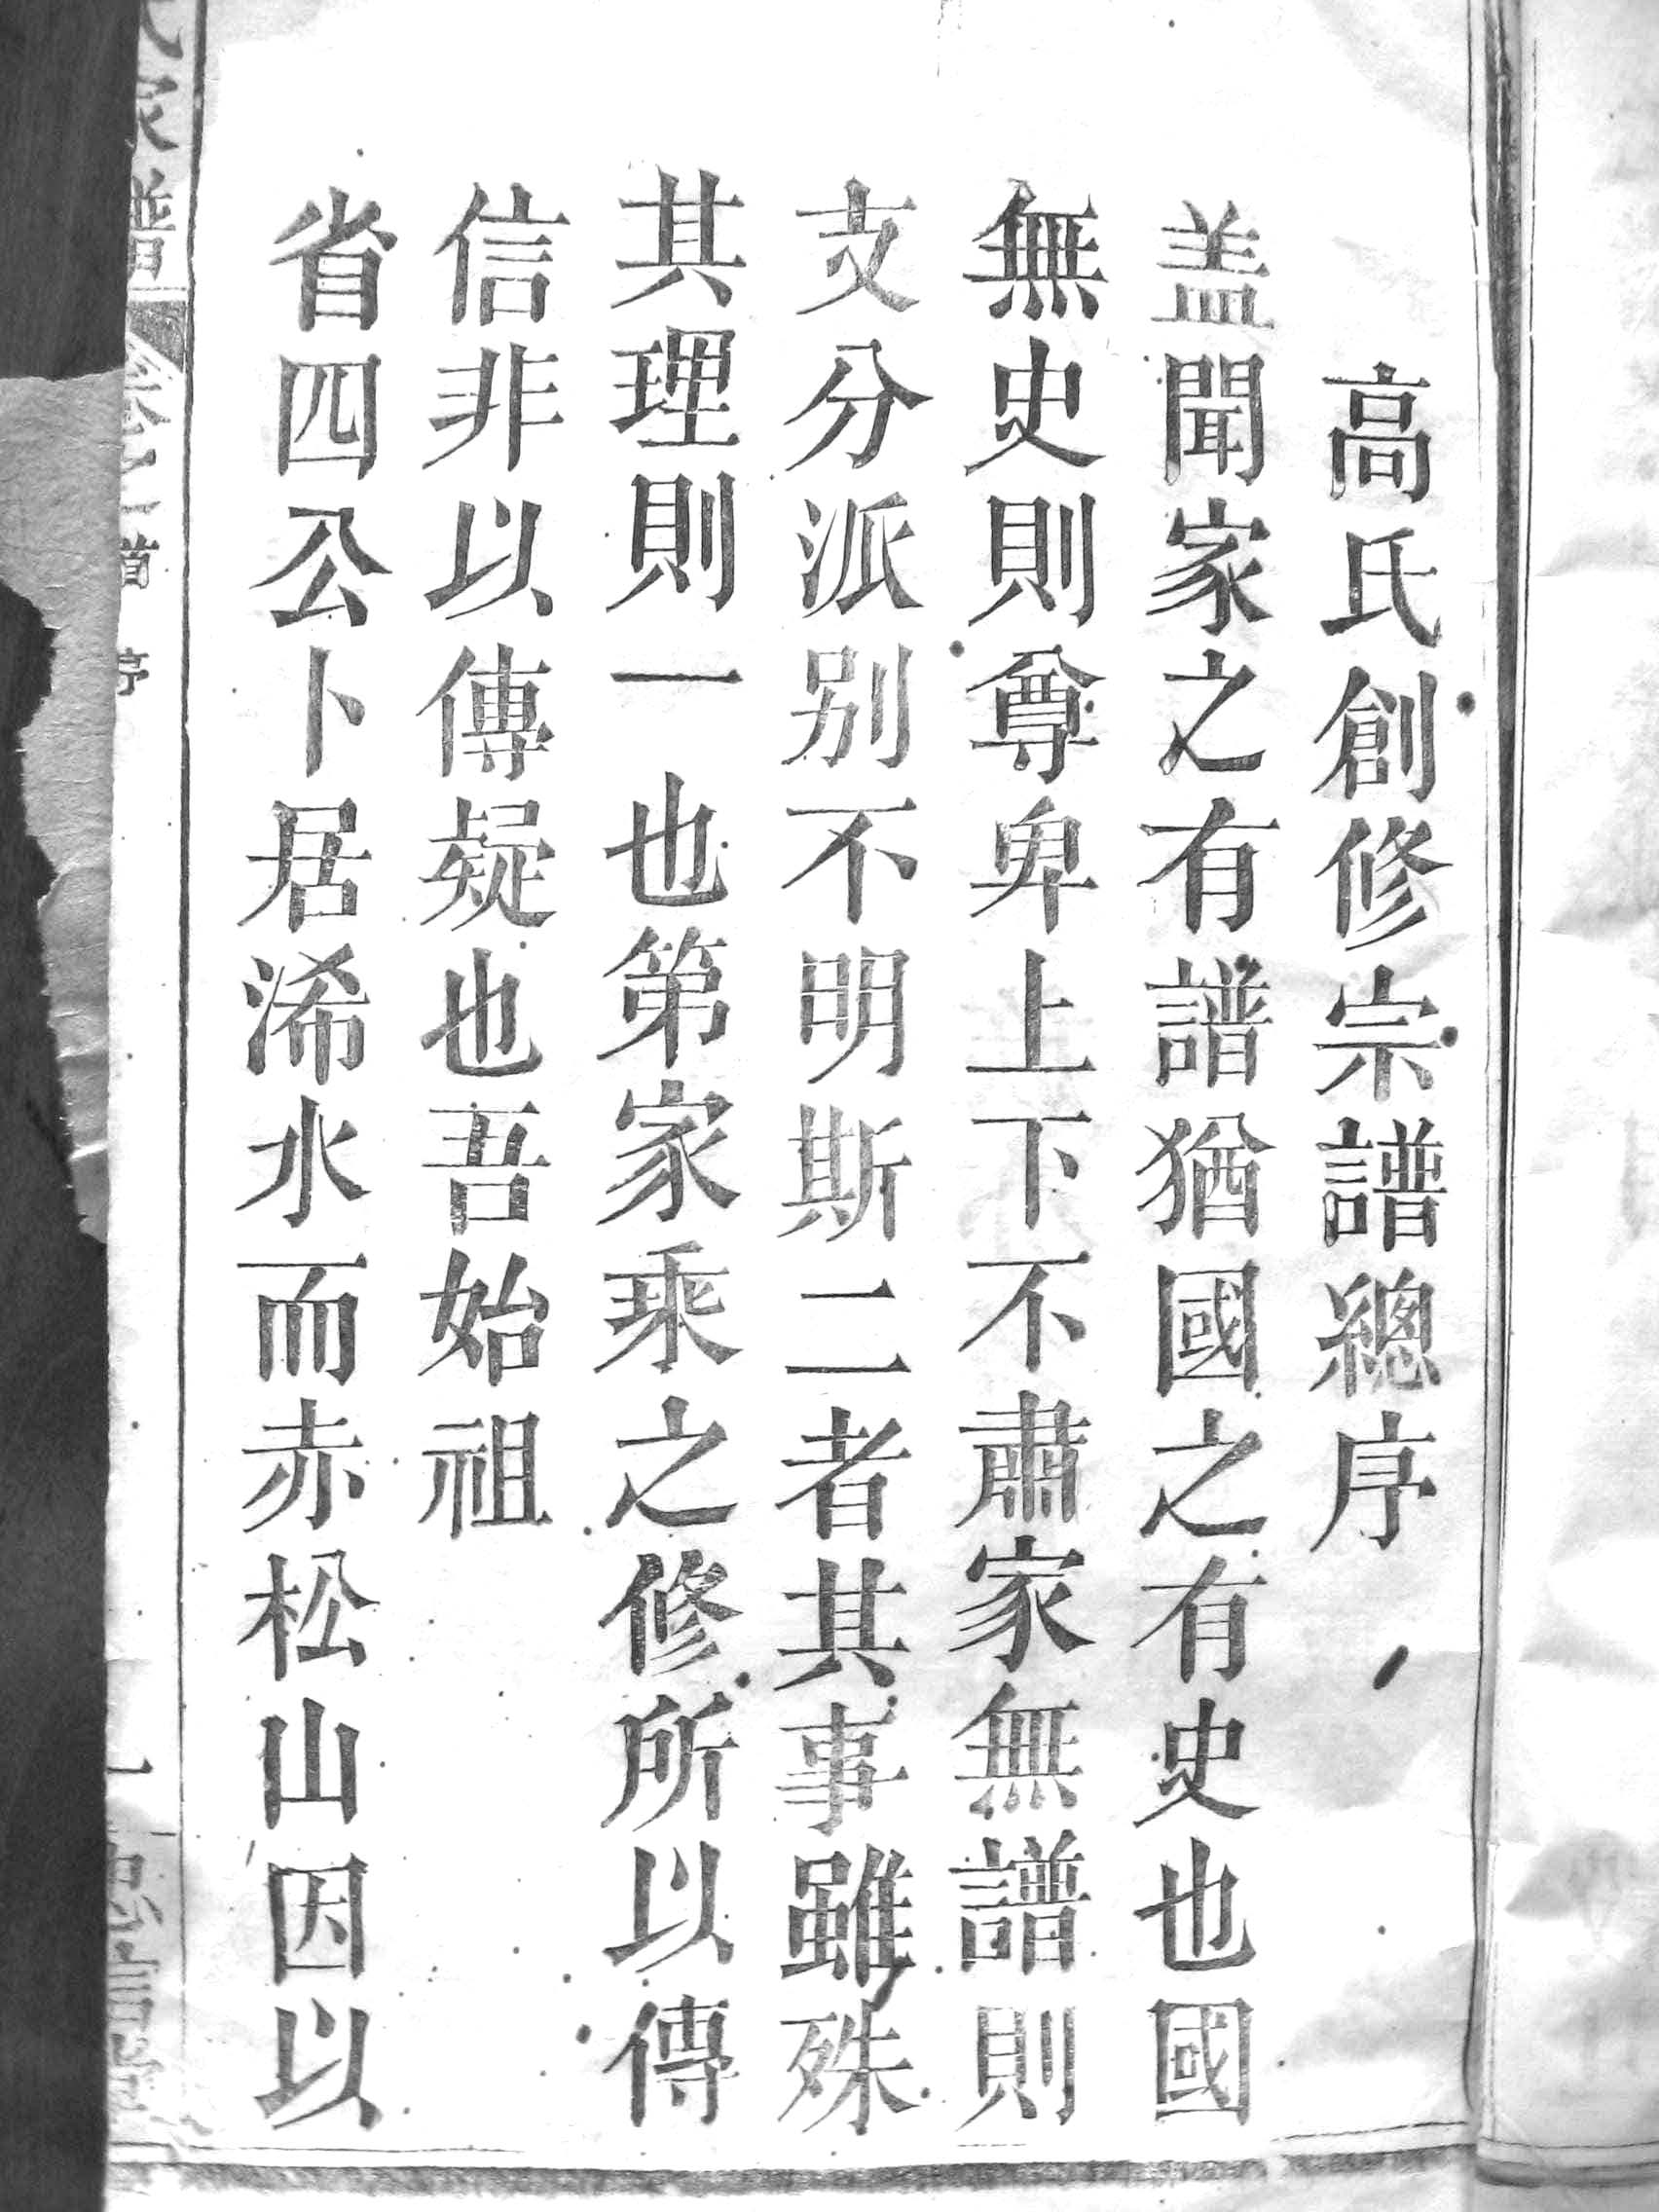 高氏創修宗譜總序
盖聞家之有譜猶國之有史也國
無史則尊卑上下不肅家無譜則
支分派别不明斯二者其事雖殊
其理則一也第家乘之修所以傳
信非以傳疑也吾始祖
省四公卜居浠水而赤松山因以
氏家譜
卷之首
序
一